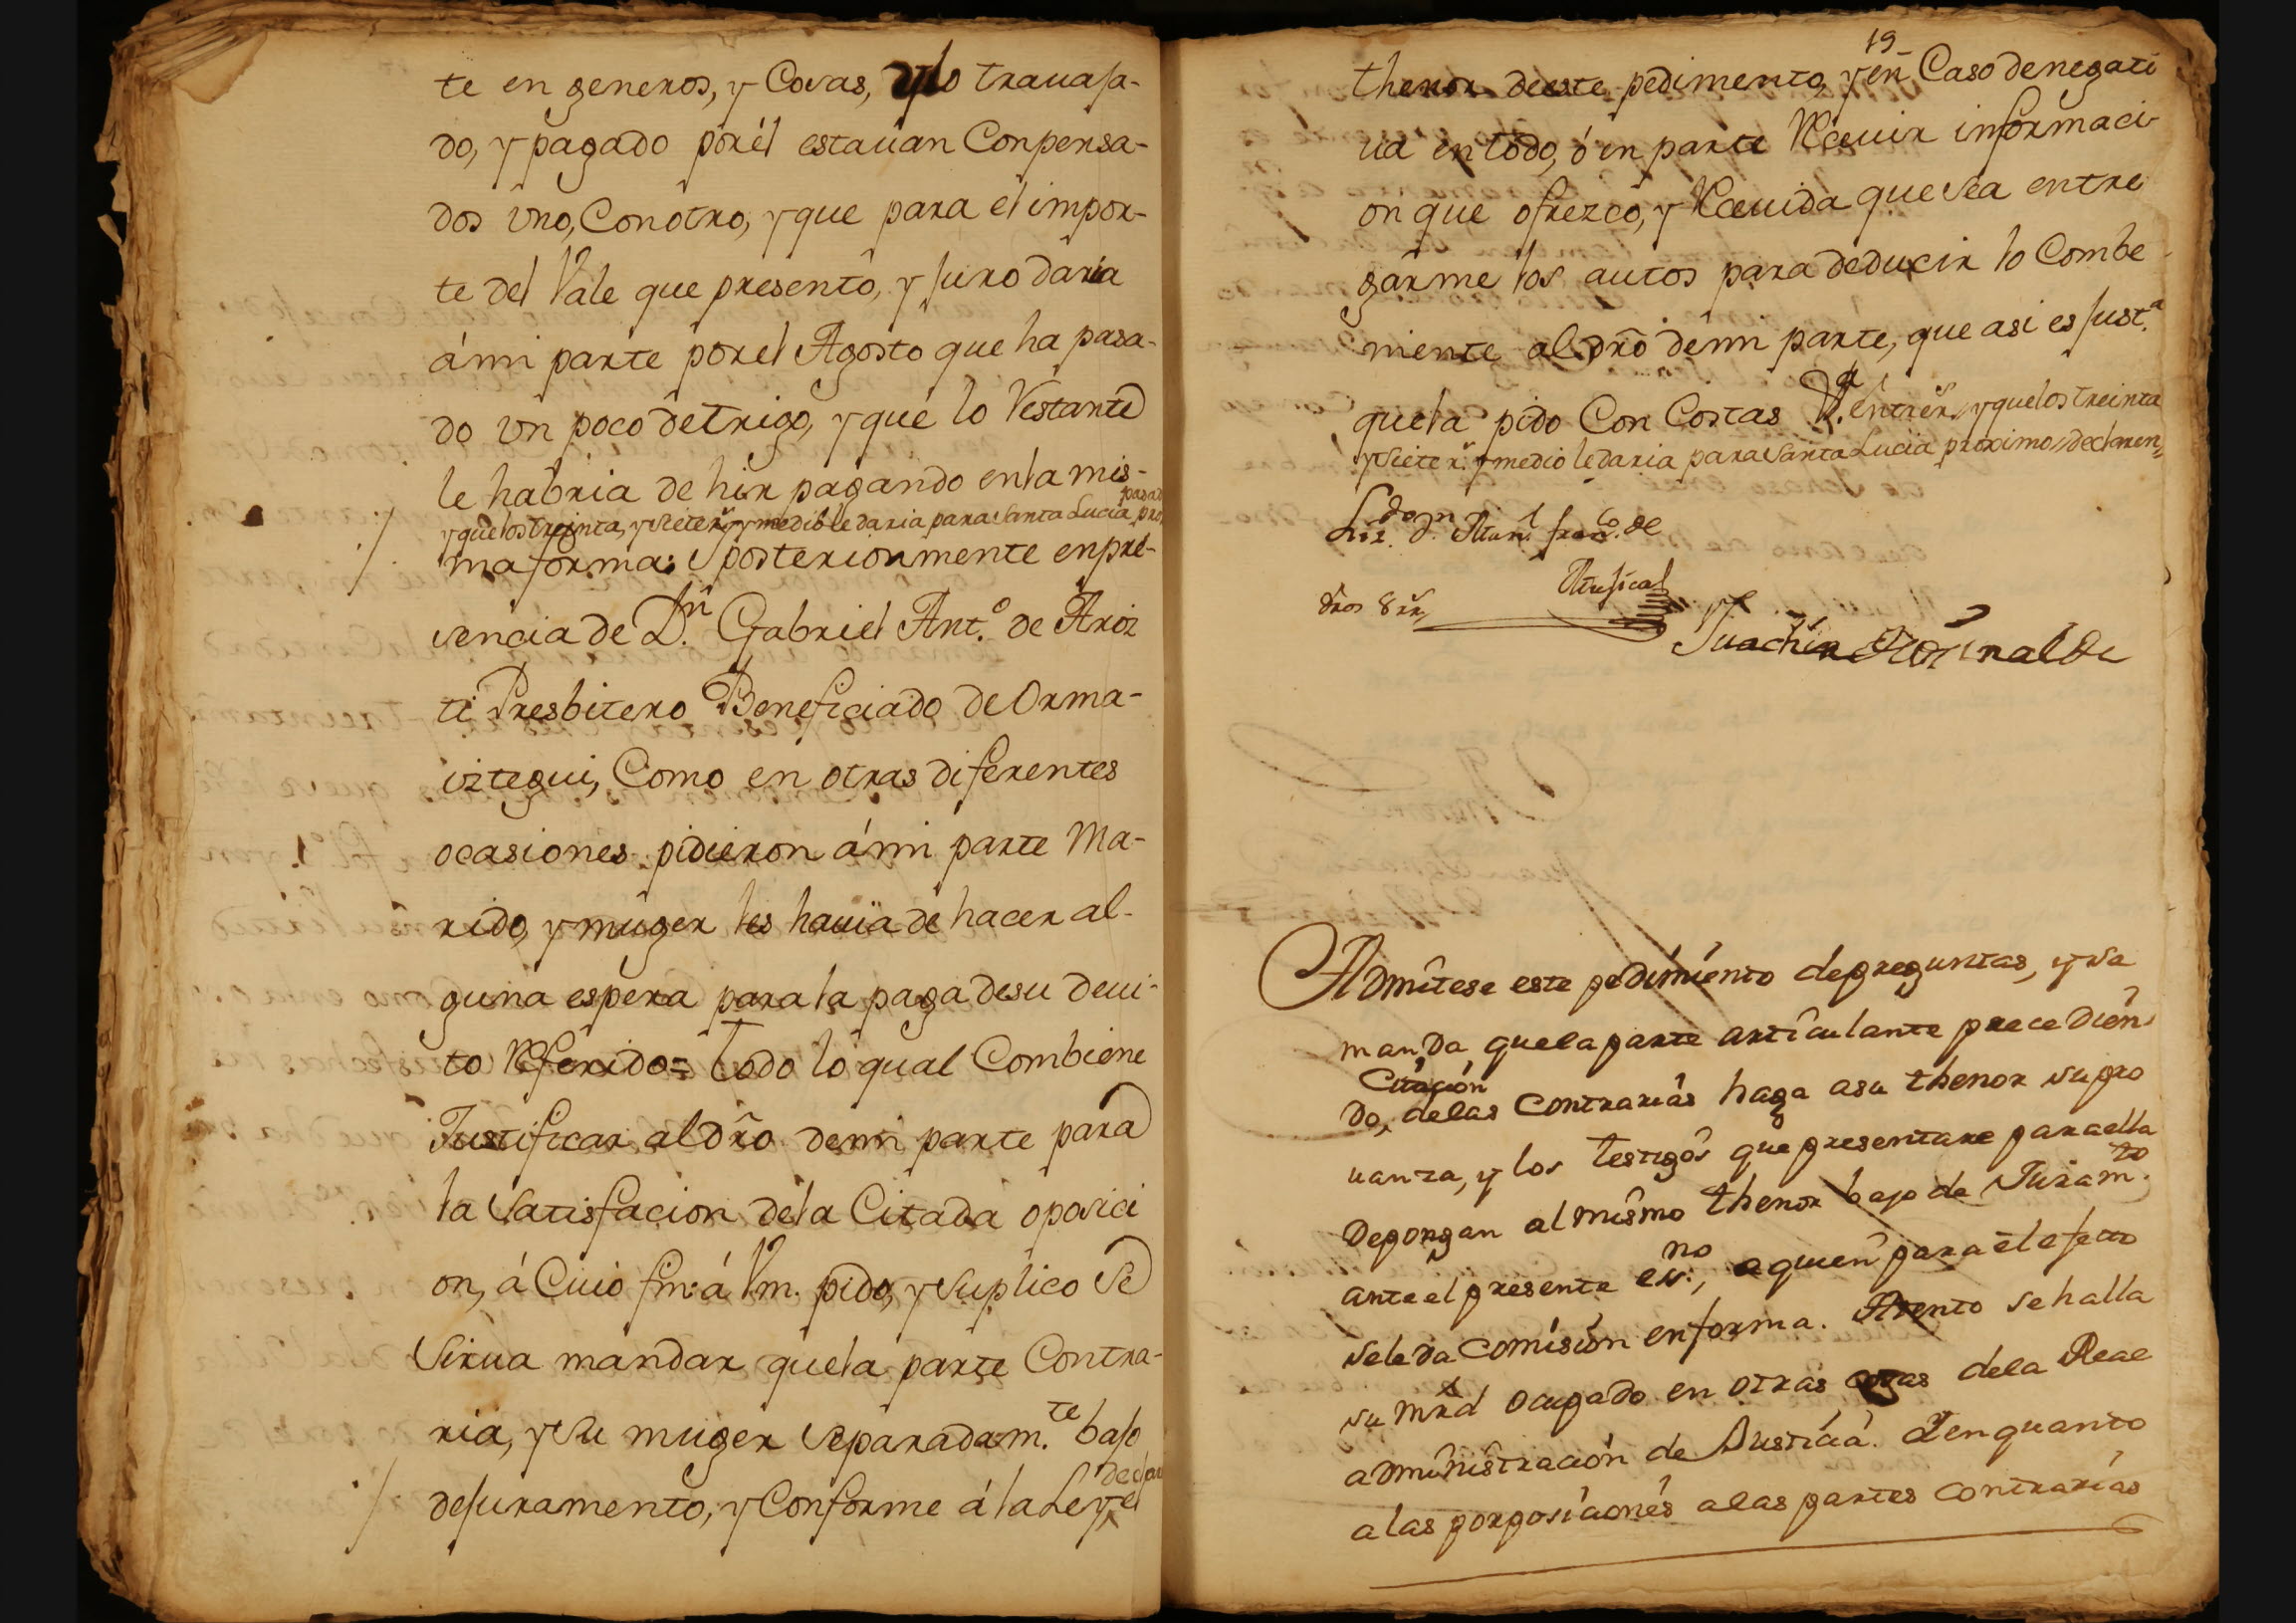 te en generos, y Cosas, y lo trauaja-
do, y pagado por él estauan Conpensa-
dos vno, Con otro, y que para el impor-
te del Vale que presentó, y juro daria
á mi parte por el Agosto que ha pasa-
do vn poco de trigo, y que lo Restante
le habria de hir pagando en la mis-
y que los treinta, y siete rr.s y medio le daria para Santa Lucia
ma forma: posteriormente en pre-
sencia de D.n Gabriel Ant.o de Ariz
ti Presbitero Beneficiado de Orma-
iztegui, Como en otras diferentes
ocasiones pidieron á mi parte Ma-
rido, y muger les hauia de hacer al-
guna espera para la paga de su deui-
to Referido = todo lo qual Combiene
Justificar al dro de mi parte para
la Satisfacion de la Citada oposici
on, á Cuio fin: á Vm. pido, y Suplico Se
Sirua mandar que la parte Contra-
ria, y su muger Separadam.te bajo
de juramento, y Conforme á la Ley, el
19
thenor de este pedimento, y en Caso de negati
ua en todo, ó en parte Reciuir informaci-
on que ofrezco, y Reciuida que sea entre
garme los autos para deducir lo Combe
niente al dro de mi parte, que asi es just.a
que la pido Con Costas entrer.s y que los treinta
y siete r.s y medio le daria para Santa Lucia proximo declaren
Liz.do D.n Man.l fran.co de
Dros 8 rr.s
Juachin
Admitese este pedimiento de preguntas, y se
manda que la parte articulante precedien
Citación
do, de las contrarias haga a su thenor su pro
uanza, y los testigos que presentare para ella
Depongan al mismo thenor bajo de Juram.to
ante el presente es.no, a quien para el efecto
se le da comisión en forma. Atento se halla
su mrd ocupado en otras cosas de la Real
administración de Justicia. Y en quanto
a las porposiciones a las partes contrarias